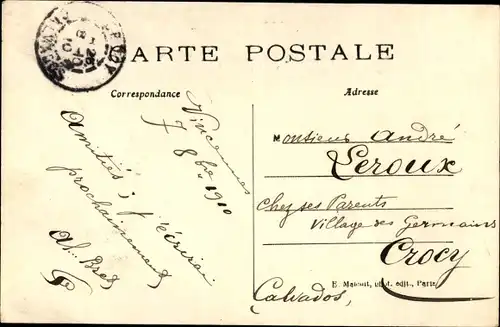 CARTE POSTALE
Correspondance
Adresse
Vincennes
7 8bre 1910
Amitiés ; j'écrirai
prochainement
Monsieur André
Leroux
chez ses Parents
Village des Germains
Crocy
Calvados,
E. Malcuit, phot. edit., Paris